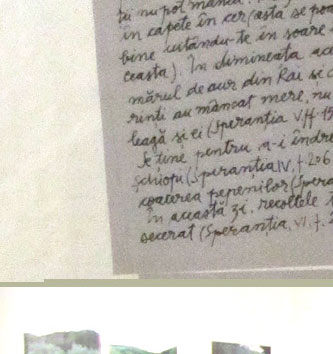 și nu pot mânca
în capete în cer (asta se poa
bine uitându-te în soare
ceasta). În dimineața ace
mărul de aur din Rai se
rinți au mâncat mere, nu
leagă și ei (Speranția VII f.
Se ține pentru a-i îndre
șchiopu (Speranția IV, f. 206
coacerea pepenilor (Spera
În această zi, recoltele t
secerat (Speranția, VI, f.